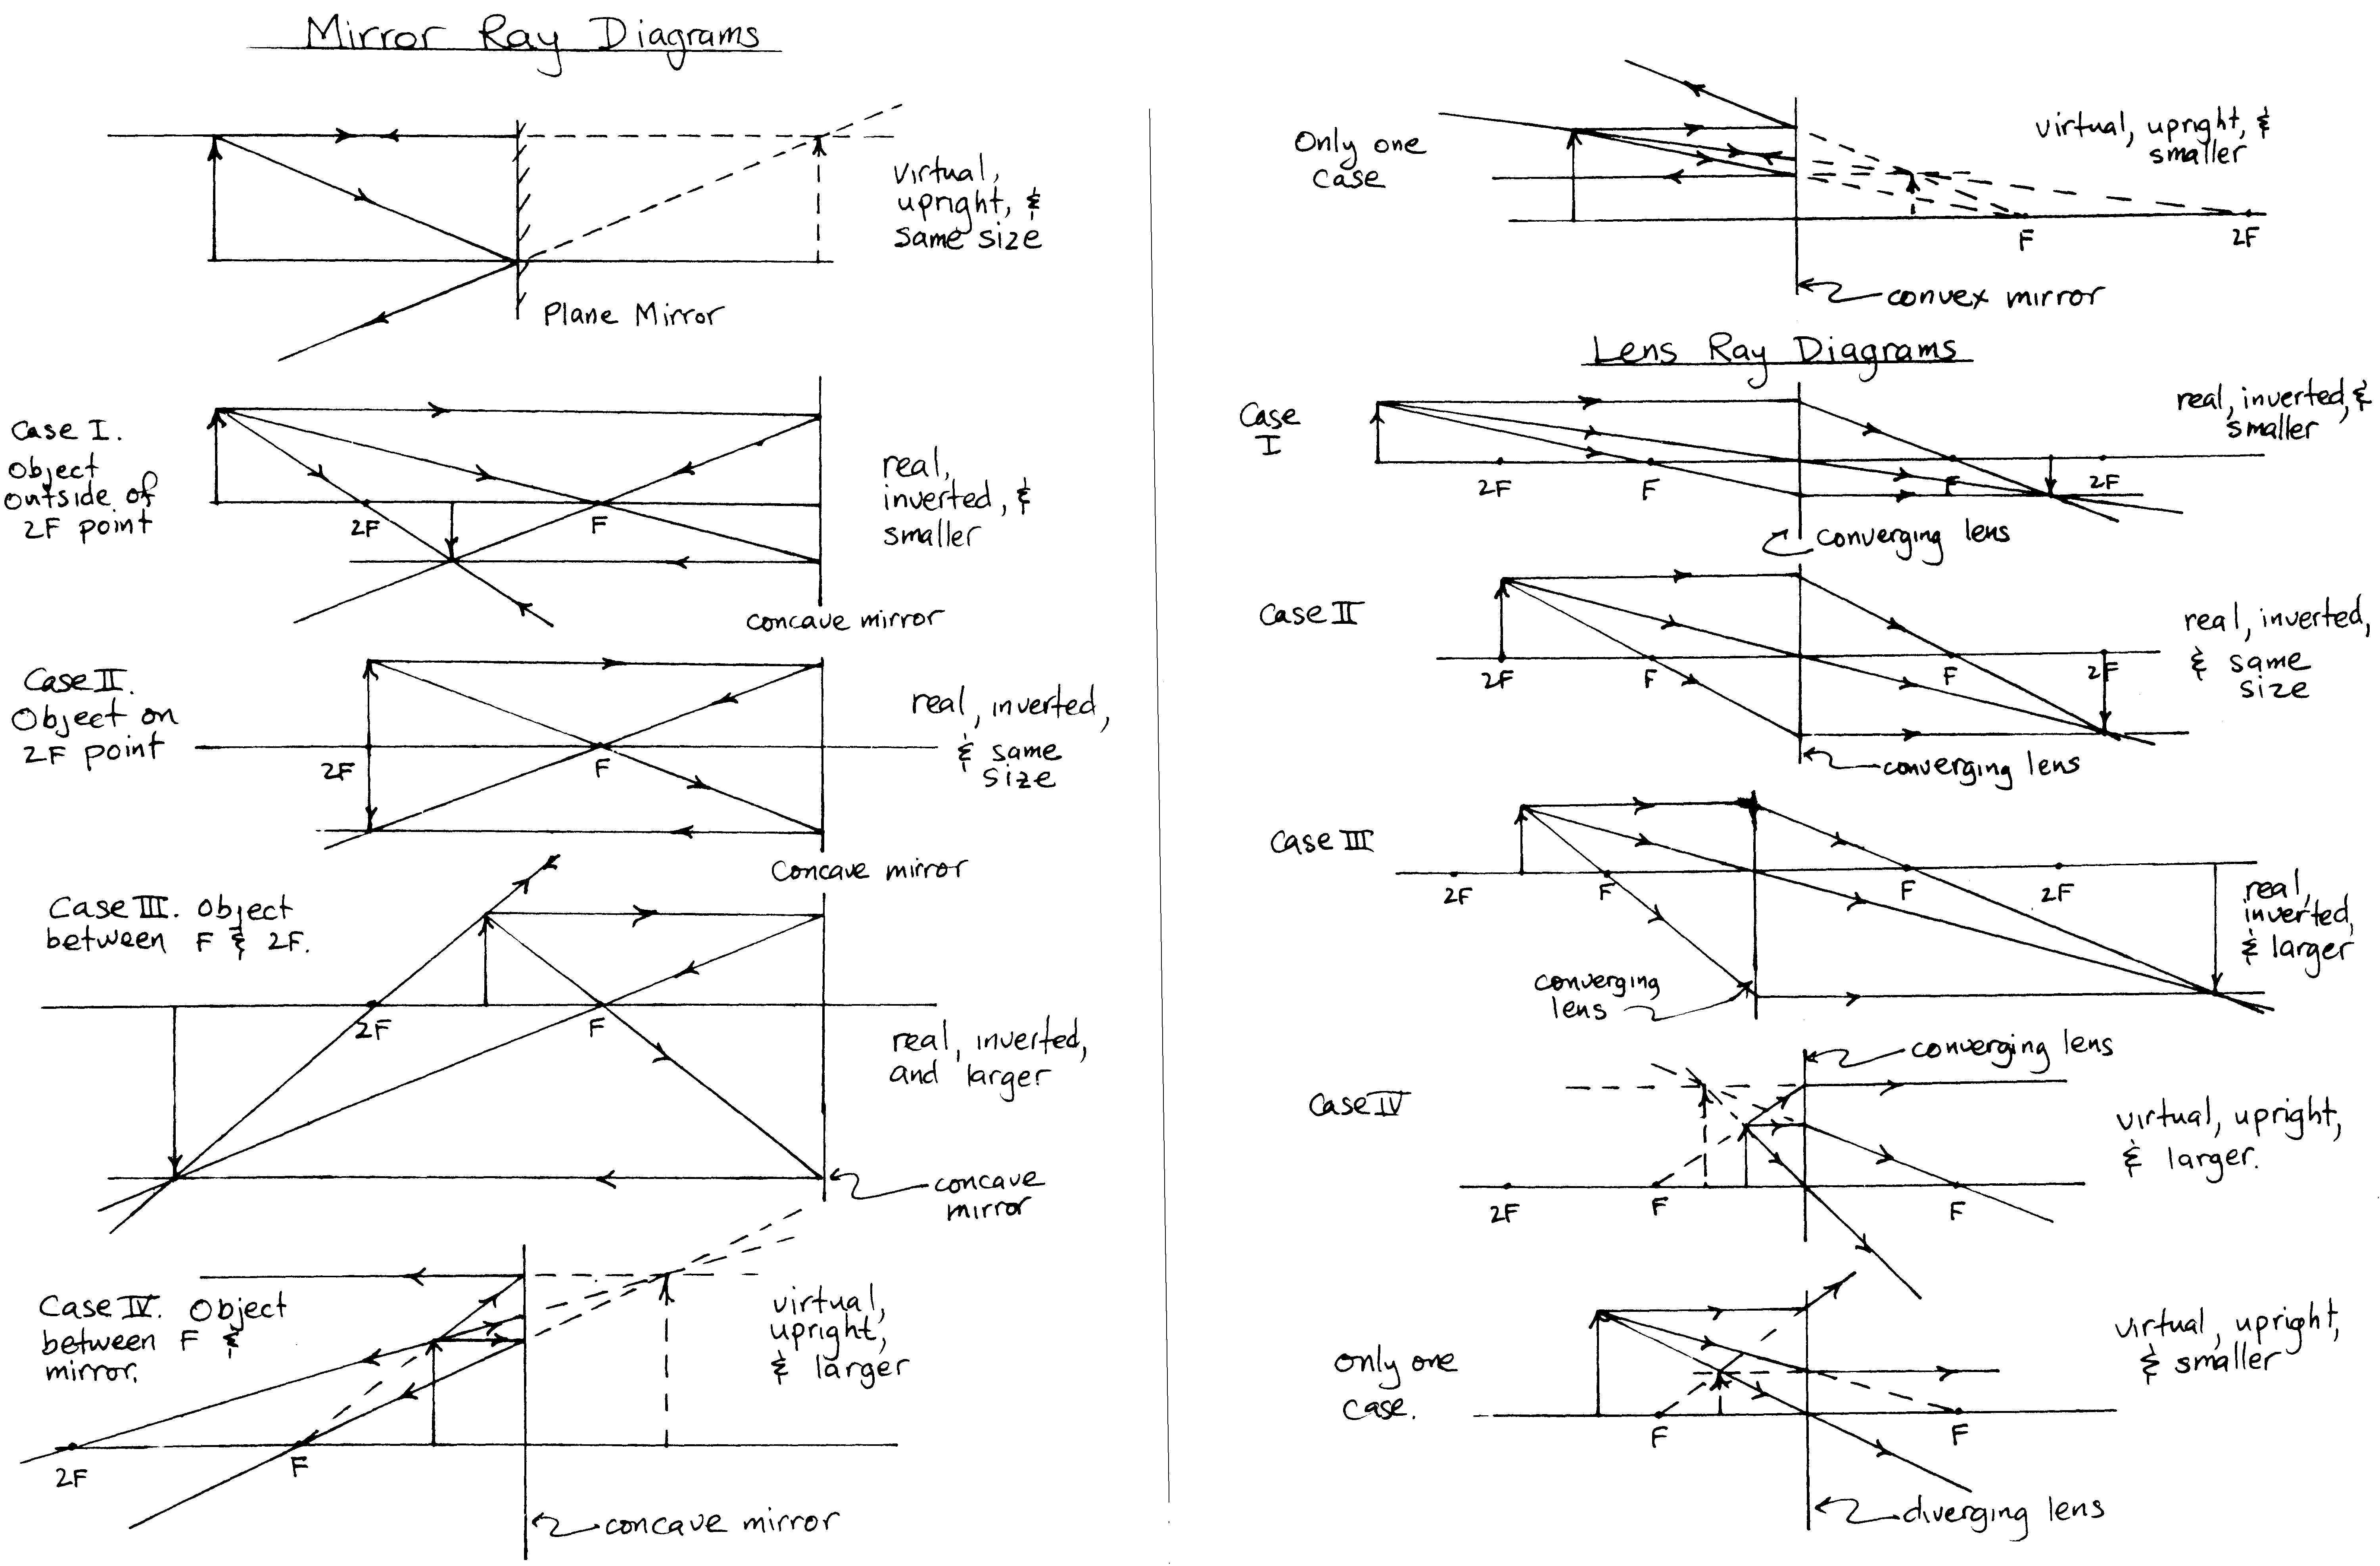 Mirror Ray Diagrams
virtual,
upright, &
same size
Plane Mirror
Case I.
Object
outside of
2F point
2F
F
real,
inverted, &
smaller
concave mirror
Case II.
Object on
2F point
2F
F
real, inverted,
& same
size
Concave mirror
Case III. Object
between F & 2F.
2F
F
real, inverted,
and larger
concave
mirror
Case IV. Object
between F &
mirror.
2F
F
virtual,
upright,
& larger
concave mirror
Only one
case
virtual, upright, &
smaller
F
2F
convex mirror
Lens Ray Diagrams
Case
I
real, inverted, &
smaller
2F
F
F
2F
converging lens
Case II
real, inverted,
& same
size
2F
F
F
2F
converging lens
Case III
2F
F
F
2F
real,
inverted,
& larger
converging
lens
converging lens
Case IV
virtual, upright,
& larger.
2F
F
F
Only one
case.
virtual, upright,
& smaller
F
F
diverging lens